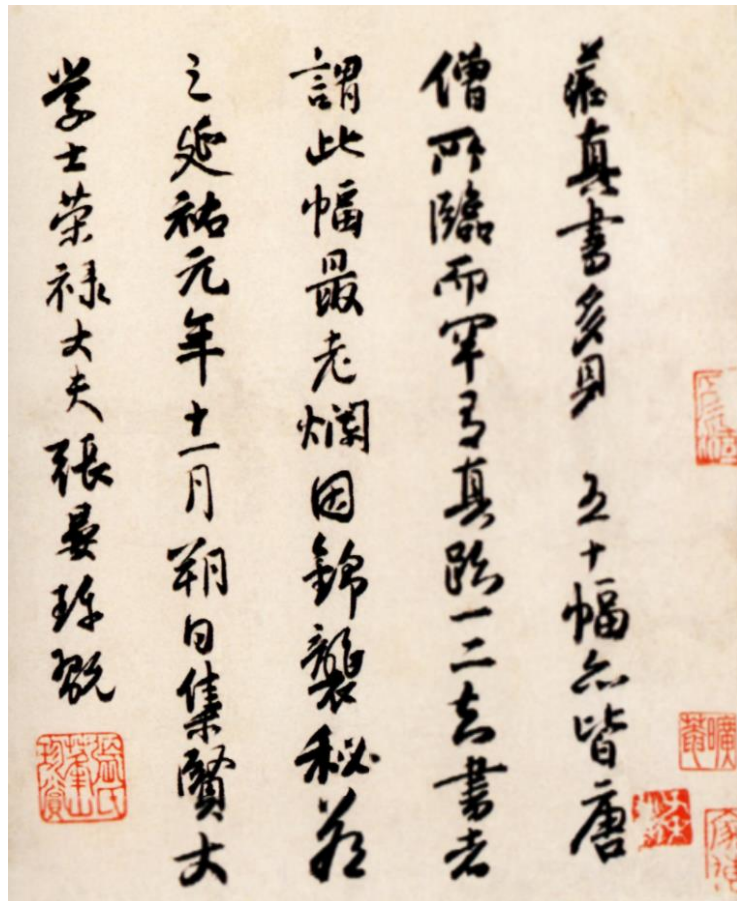 藏真書多見 五十幅亦皆唐
僧所臨而罕有真跡一二知書者
謂此幅最老爛因錦襲秘藏
之延祐元年十一月朔日集賢大
學士榮祿大夫張晏珍翫
張氏蓬山珍賞